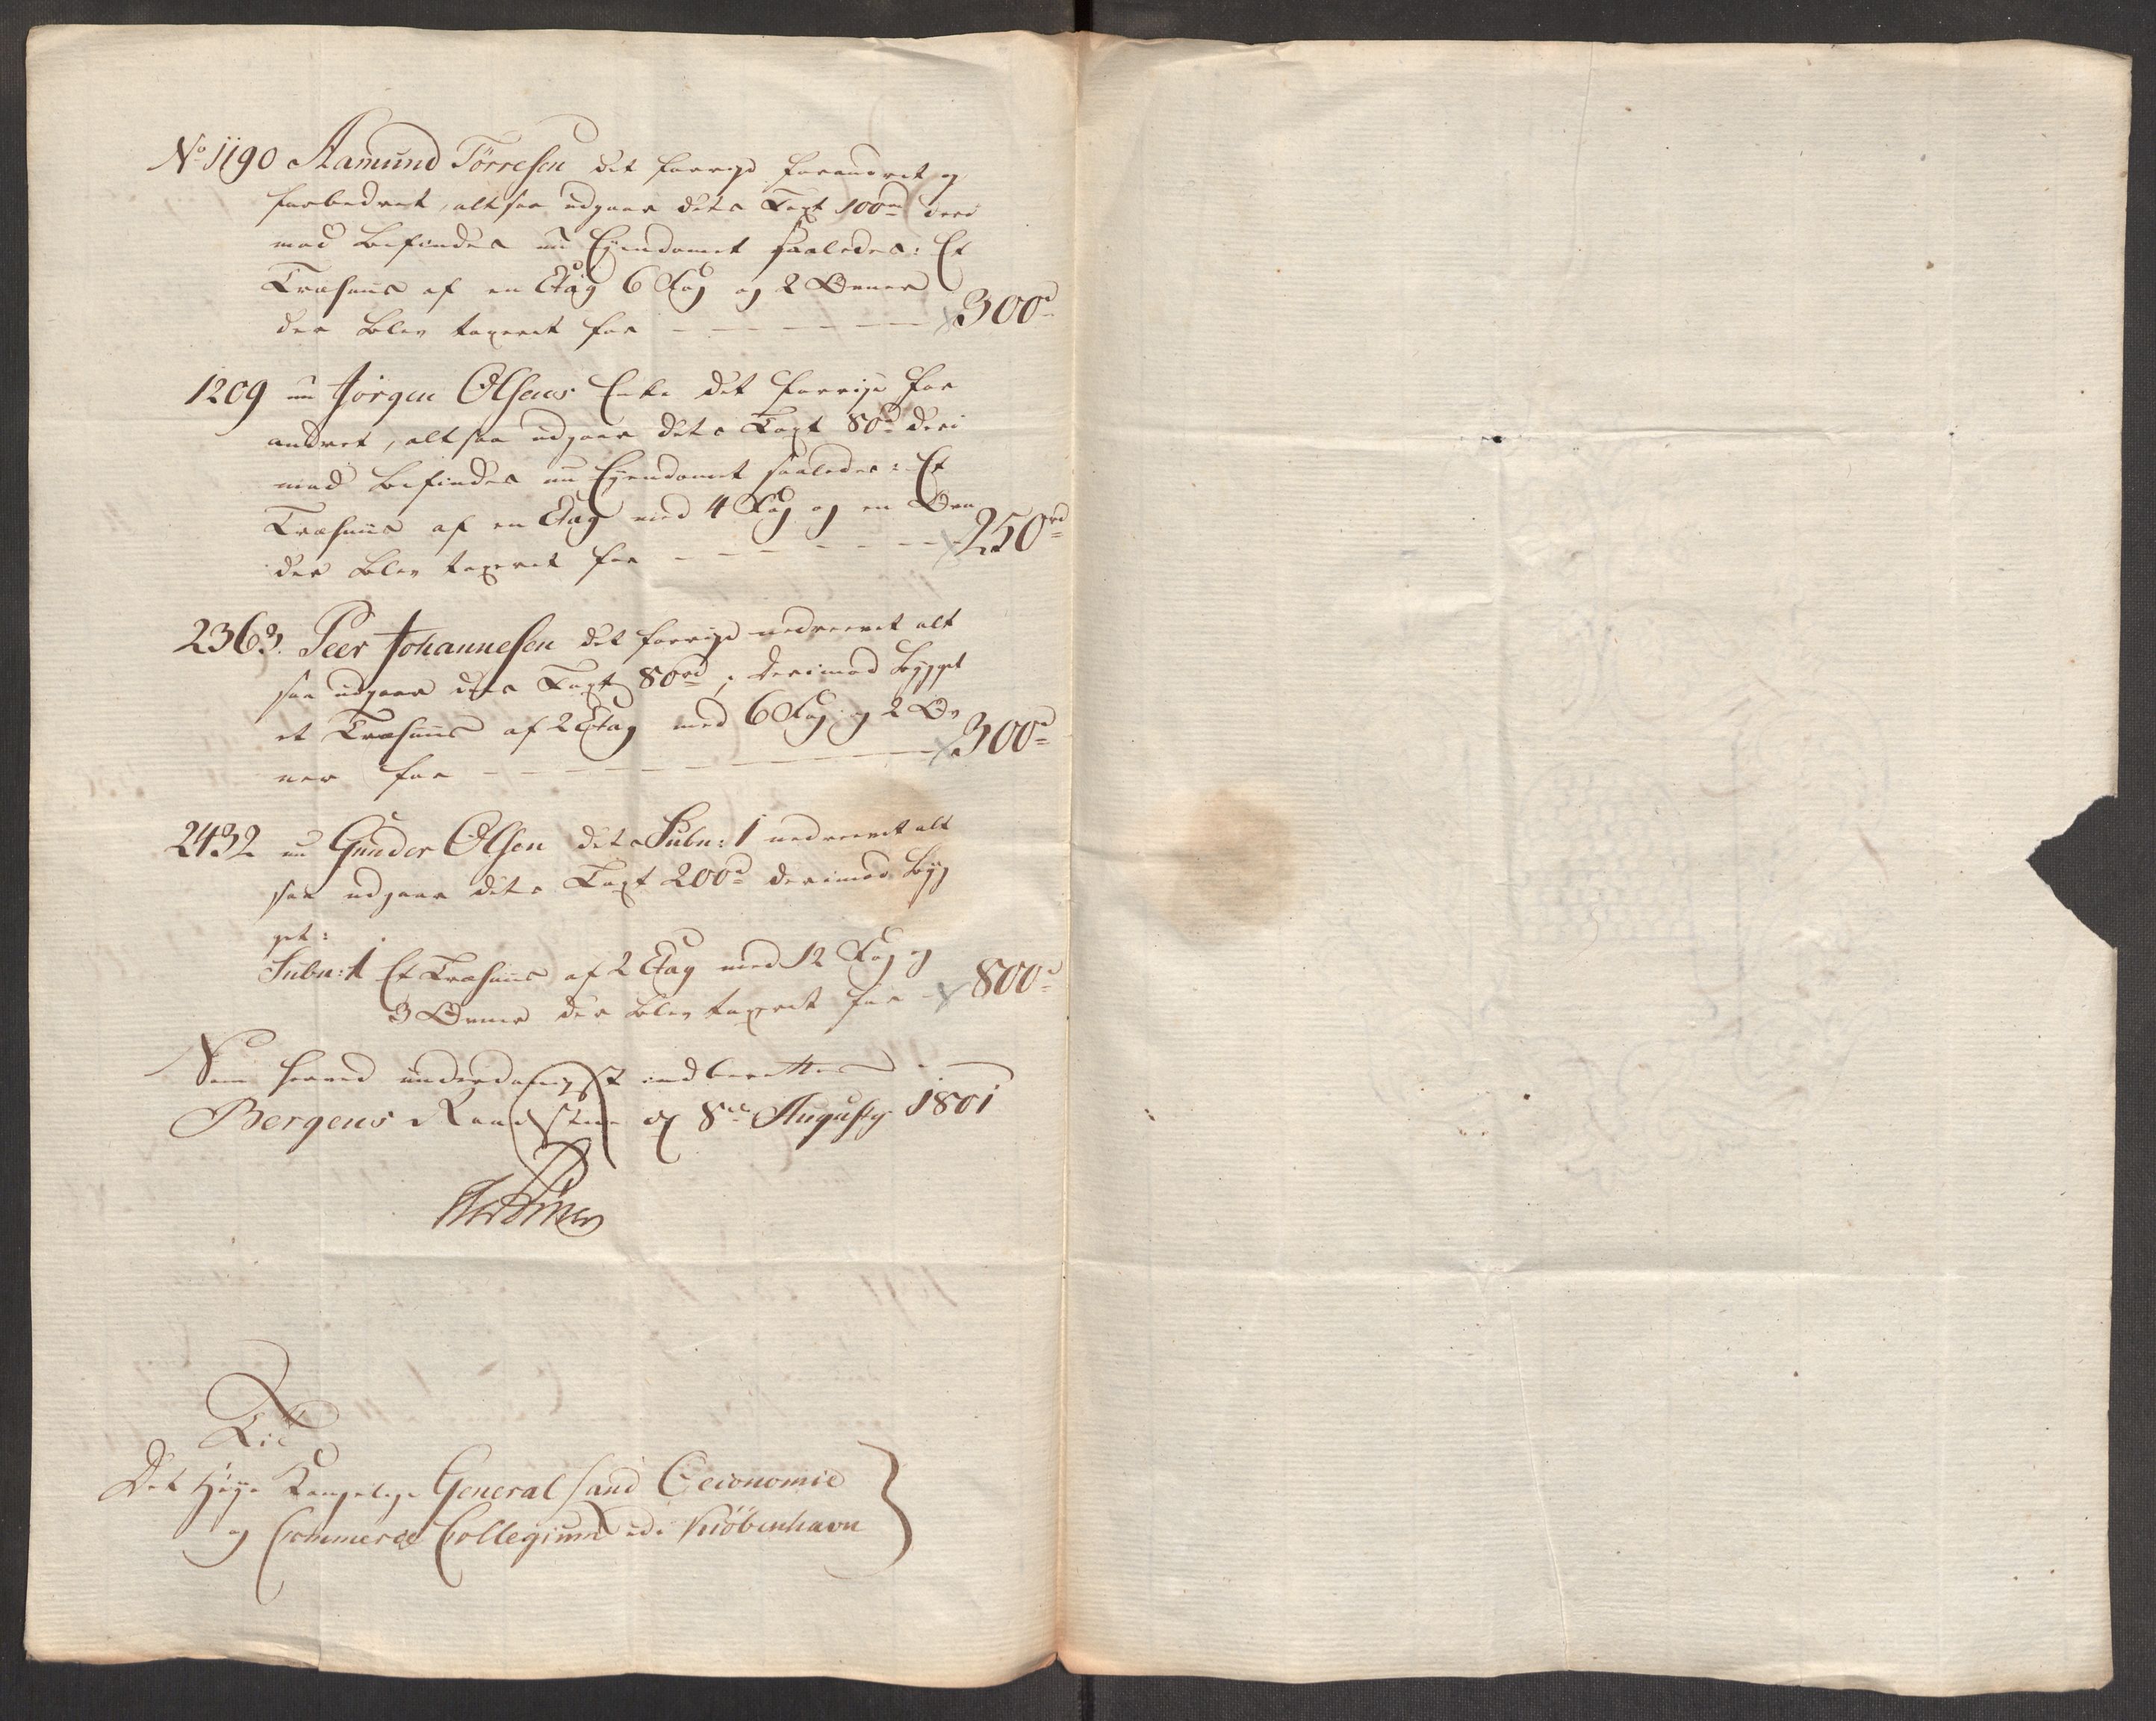 No 1190 Aamund Törresen det forrige forandret og
forbedret, altsaa udgaar dets Taxt 100rd deri
mod befindes nu Eyendomet saaledes: Et
Træhuus af en Etag 6 Fag og 2 Ovner
der blev taxeret for - - - - - - - 300rd
1209 nu Jörgen Olsens Enke det forrige for
andret, altsaa udgaar dets Taxt 80rd deri
mod befindes nu Eyendomet saaledes: Et
Træhuus af en Etag med 4 Fag og en Ovn
der blev taxeret for - - - - - - - 250rd
2363. Peer Johannesen det forrige nedrevet alt
saa udgaar dets Taxt 80rd, derimod bygget
et Træhuus af 2 Etag med 6 Fag og 2 Ov
ner for - - - - - - - - - 300rd
2432 nu Gunder Olsen dets Subn: 1 nedrevet alt
saa udgaar dets Taxt 200rd derimod byg
get:
Subn: 1 Et Træhuus af 2 Etag med 12 Fag og
3 Ovner der blev taxeret for - 800rd
Som herved underdanigst indberettes
Bergens Raadstue d 8de Augusty 1801
Til
Det Höye Kongelige General Land Oeconomie
og Commerce Collegium udi Kiöbenhavn